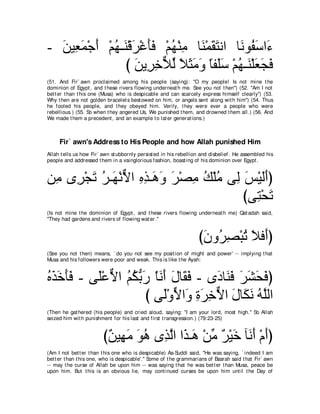 - ءَاسَفُونَا انتَقَمْنَا مِنْهُمْ فَأَغْرَقْنَـهُمْ أَجْمَعِينَ
فَجَعَلْنَـهُمْ سَلَفاً وَمَثَلاً لِّلاٌّخِرِينَ )
(51. And Fir`awn proclaimed among his people (saying): "O my people! Is not mine the
dominion of Egypt, and these rivers flowing underneath me. See you not then") (52. "Am I not
better than this one (Musa) who is despicable and can scarcely express himself clearly") (53.
Why then are not golden bracelets bestowed on him, or angels sent along with him") (54. Thus
he fooled his people, and they obeyed him. Verily, they were ever a people who were
rebellious.) (55. So when they angered Us, We punished them, and drowned them all.) (56. And
We made them a precedent, and an example to later generations.)
Fir`awn's Address to His People and how Allah punished Him
Allah tells us how Fir`awn stubbornly persisted in his rebellion and disbelief. He assembled his
people and addressed them in a vainglorious fashion, boasting of his dominion over Egypt.
(أَلَيْسَ لِى مُلْكُ مِصْرَ وَهَـذِهِ الاٌّنْهَـرُ تَجْرِى مِن
تَحْتِى)
(Is not mine the dominion of Egypt, and these rivers flowing underneath me) Qatadah said,
"They had gardens and rivers of flowing water."
(أَفَلاَ تُبْصِرُونَ)
(See you not then) means, `do you not see my position of might and power' -- implying that
Musa and his followers were poor and weak. This is like the Ayah:
(فَحَشَرَ فَنَادَى - فَقَالَ أَنَاْ رَبُّكُمُ الاٌّعْلَى - فَأَخَذَهُ
اللَّهُ نَكَالَ الاٌّخِرَةِ وَالاٍّوْلَى )
(Then he gathered (his people) and cried aloud, saying: "I am your lord, most high." So Allah
seized him with punishment for his last and first transgression.) (79:23-25)
(أَمْ أَنَآ خَيْرٌ مِّنْ هَـذَا الَّذِى هُوَ مَهِينٌ)
(Am I not better than this one who is despicable) As-Suddi said, "He was saying, `indeed I am
better than this one, who is despicable'." Some of the grammarians of Basrah said that Fir`awn
-- may the curse of Allah be upon him -- was saying that he was better than Musa, peace be
upon him. But this is an obvious lie, may continued curses be upon him until the Day of